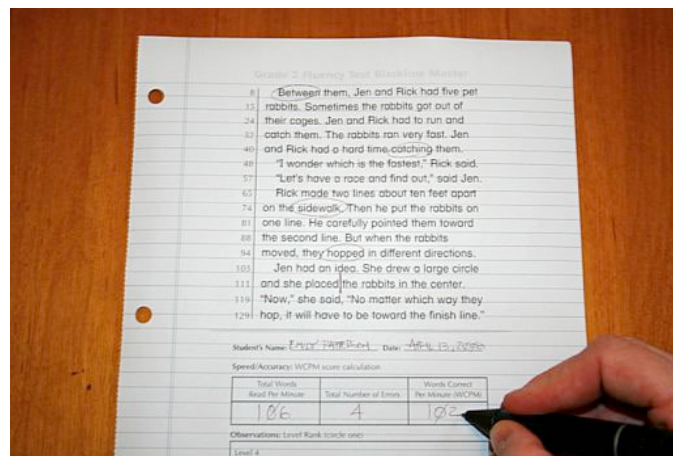 Grade 2 Fluency Test Blackline Master
8 Between them, Jen and Rick had five pet
15 rabbits. Sometimes the rabbits got out of
24 their cages. Jen and Rick had to run and
32 catch them. The rabbits ran very fast. Jen
40 and Rick had a hard time catching them.
48 "I wonder which is the fastest," Rick said.
57 "Let's have a race and find out," said Jen.
65 Rick made two lines about ten feet apart
74 on the sidewalk. Then he put the rabbits on
81 one line. He carefully pointed them toward
88 the second line. But when the rabbits
94 moved, they hopped in different directions.
103 Jen had an idea. She drew a large circle
111 and she placed the rabbits in the center.
119 "Now," she said, "No matter which way they
129 hop, it will have to be toward the finish line."
Student's Name: EMILY Date: APRIL 13,
Speed/Accuracy: WCPM score calculation
Total Words Words Correct
Read Per Minute Total Number of Errors Per Minute (WCPM)
106 4 102
Observations: Level Rank (circle one)
Level 4